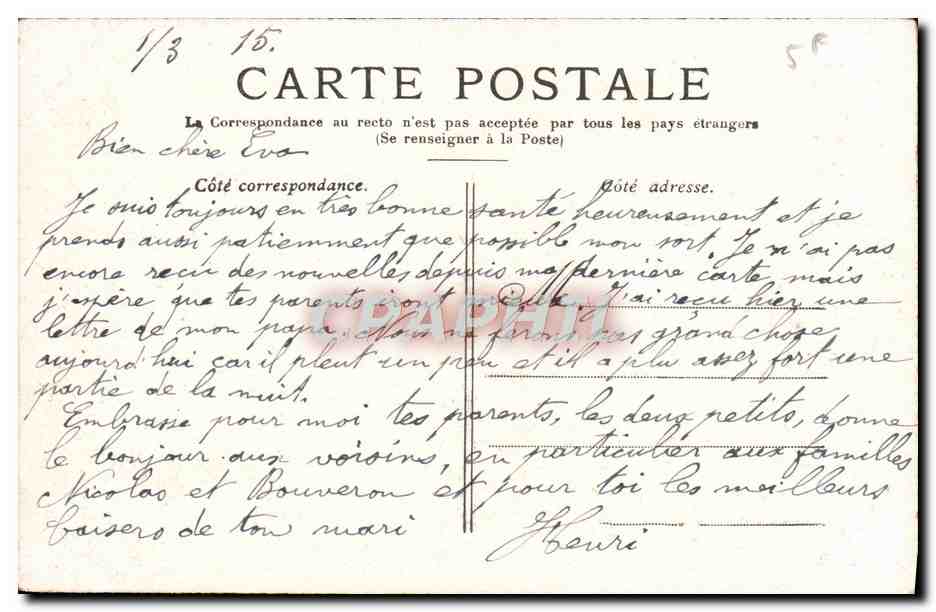 1/3 15.
5F
CARTE POSTALE
La Correspondance au recto n'est pas acceptée par tous les pays étrangers
(Se renseigner à la Poste)
Bien chère Eva
Côté correspondance.
Côté adresse.
Je suis toujours en très bonne santé heureusement et je
prends aussi patiemment que possible mon sort. Je n'ai pas
encore reçu des nouvelles depuis ma dernière carte mais
j'espère que tes parents iront mieux. J'ai reçu hier une
lettre de mon papa. Nous ne ferons pas grand chose
aujourd'hui car il pleut un peu et il a plu assez fort une
partie de la nuit.
Embrasse pour moi tes parents, les deux petits, donne
le bonjour aux voisins, en particulier aux familles
Nicolas et Bouveron et pour toi les meilleurs
baisers de ton mari Henri
CPAPHIL